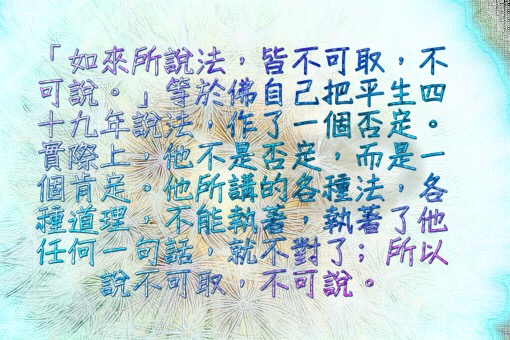 「如來所說法，皆不可取，不
可說。」等於佛自己把平生四
十九年說法，作了一個否定。
實際上，他不是否定，而是一
個肯定。他所講的各種法，各
種道理，不能執著，執著了他
任何一句話，就不對了；所以
說不可取，不可說。